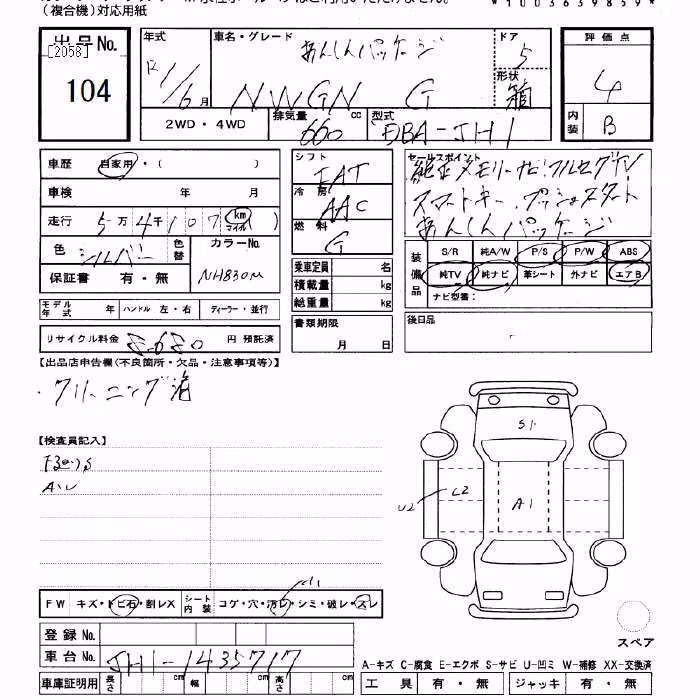 (複合機)対応用紙
*1003639859*
出品No.
[2058]
104
年式
R 1/6 月
車名・グレード
あんしんパッケージ
NWGN G
ドア
5
形状
箱
評価点
4
内装
B
2WD・4WD
排気量
660 cc
型式
DBA-JH1
車歴 自家用・( )
車検 年 月
走行 5万4千107 km マイル ( )
色 シルバー
色替
カラーNo.
NH830M
保証書 有・無
モデル年式 年 ハンドル 左・右 ディーラー・並行
リサイクル料金 円 預託済
シフト
FAT
冷房
AAC
燃料
G
乗車定員 名
積載量 kg
総重量 kg
書類期限
月 日
セールスポイント
純正メモリーナビ・フルセグTV
スマートキー・プッシュスタート
あんしんパッケージ
装備品
S/R 純A/W P/S P/W ABS
純TV 純ナビ 革シート 外ナビ エアB
ナビ型番:
後日品
【出品店申告欄(不良箇所・欠品・注意事項等)】
・クリーニング済
【検査員記入】
S1
A1
U2
L2
FW キズ・トビ石・割レX シート内装 コゲ・穴・汚レ・シミ・破レ・スレ
登録No.
車台No. JH1-1435717
車庫証明用 長さ cm 幅 cm 高さ cm
スペア
A-キズ C-腐食 E-エクボ S-サビ U-凹ミ W-補修 XX-交換済
工具 有・無 ジャッキ 有・無